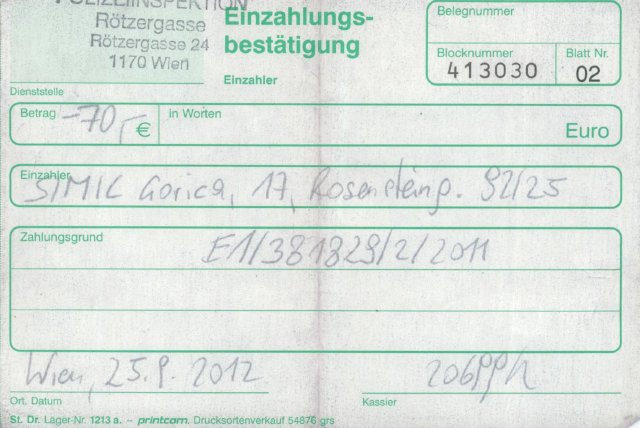 POLIZEIINSPEKTION
Rötzergasse
Rötzergasse 24
1170 Wien
Dienststelle
Einzahlungs-
bestätigung
Einzahler
Belegnummer
Blocknummer
413030
Blatt Nr.
02
Betrag -70,- €
in Worten
Euro
Einzahler
SIMIC Gorica, 17, Rosensteing. 92/25
Zahlungsgrund
E1/381829/2/2011
Wien, 25.9. 2012
Ort. Datum
Kassier
St. Dr. Lager-Nr. 1213 a. – printcom. Drucksortenverkauf 54876 grs